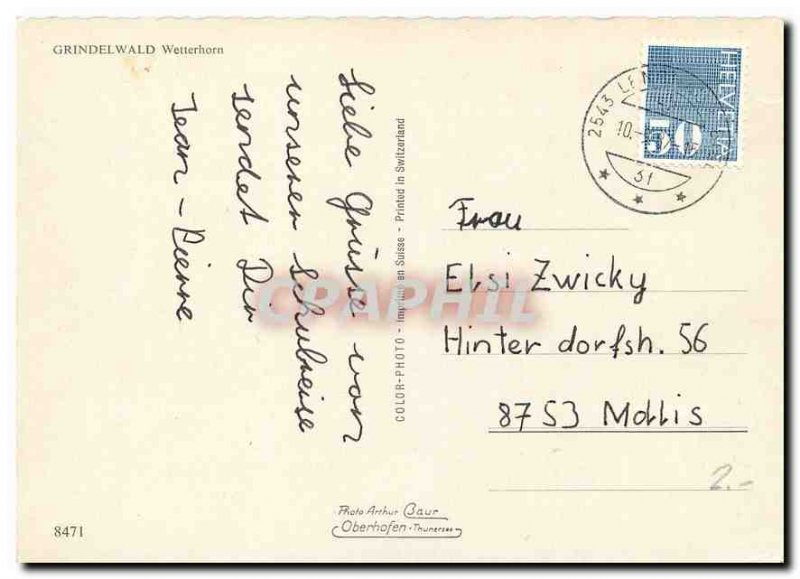 GRINDELWALD Wetterhorn
Liebe Grüsse von
unserer Schulreise
sendet Dir
Jean-Pierre
COLOR-PHOTO - Imprimé en Suisse - Printed in Switzerland
HELVETIA
50
2543 LEN
10.
31
Frau
Elsi Zwicky
Hinterdorfsh. 56
8753 Mollis
2.-
CPAPHIL
Photo Arthur Baur
Oberhofen-Thunersee
8471